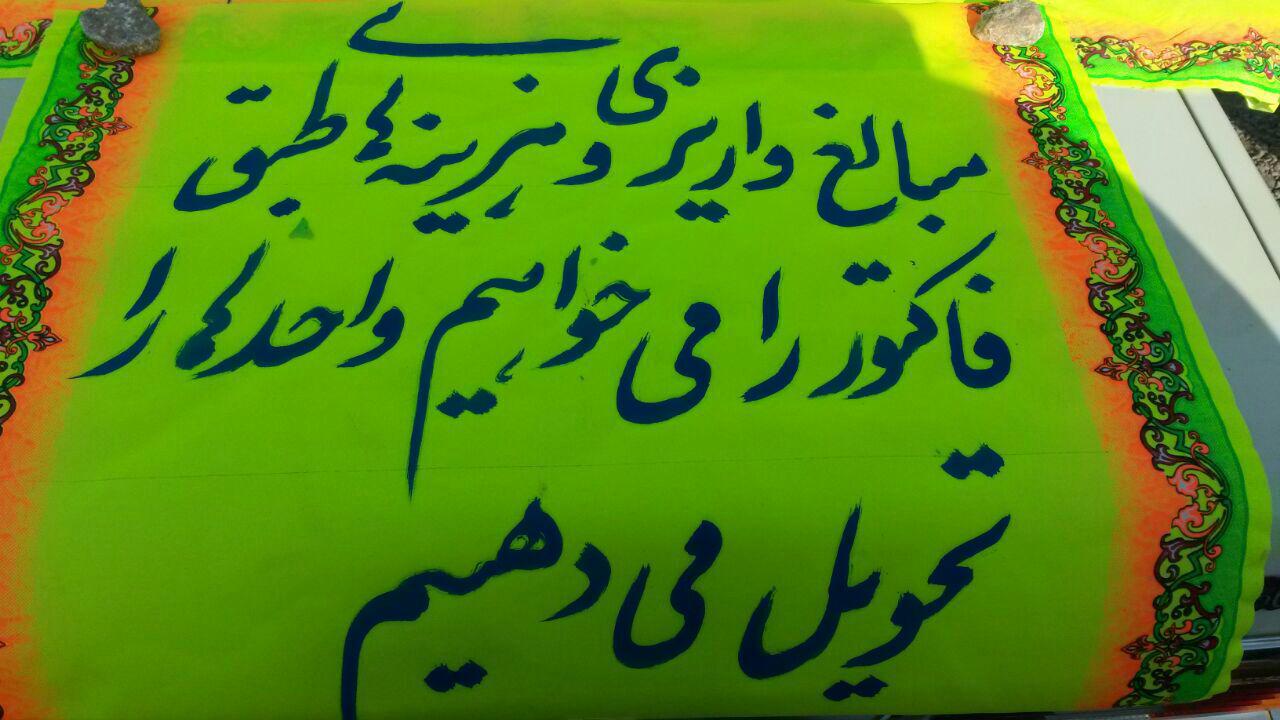 مبالغ واریزی و هزینه های طبق
فاکتور را می خواهیم واحدها را
تحویل می دهیم